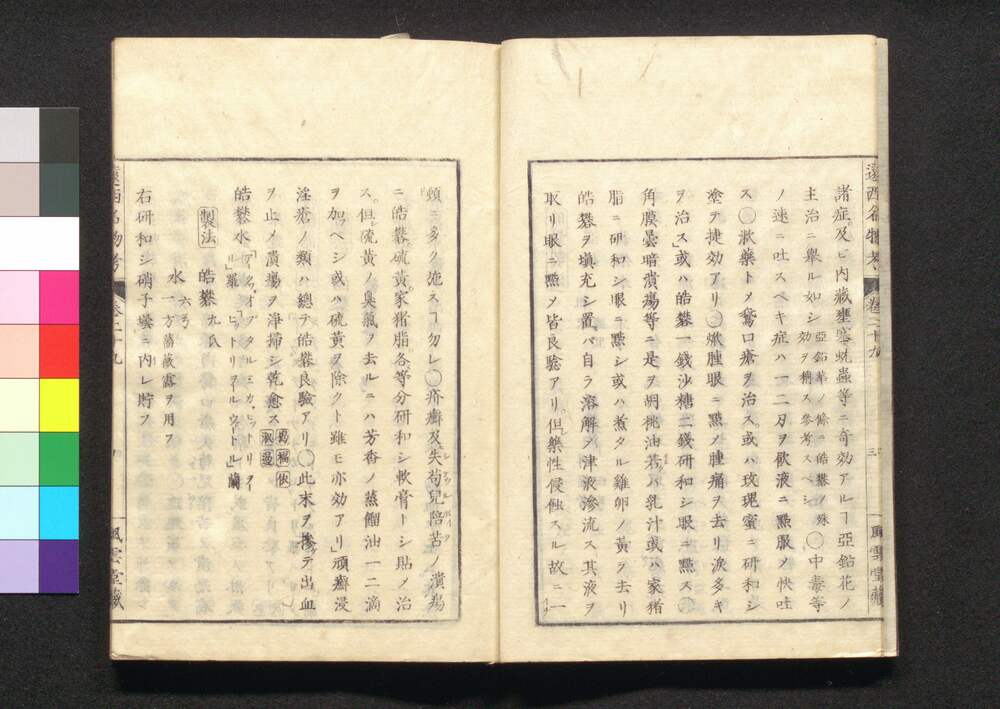 遠西名物考 卷二十九 三 風雲堂藏
諸症及ヒ内藏壅塞蚘蟲等ニ奇効アルヿ亞鉛花ノ
主治ニ舉ル如シ 亞鉛華ノ條ニ皓礬ノ殊効ヲ稱ス參考スベシ 〇中毒等
ノ速ニ吐スベキ症ハ一二刃ヲ飮液ニ點服ノ快吐
ス〇漱藥トメ鵞口瘡ヲ治ス。或ハ玫瑰蜜ニ研和シ
塗テ捷効アリ〇焮腫眼ニ點ノ腫痛ヲ去リ淚多キ
ヲ治ス」或ハ皓礬一錢沙糖二錢研和シ眼ニ點ス〇
角膜曇暗潰瘍等ニ是ヲ胡桃油若クハ乳汁或ハ家猪
脂ニ研和シ眼ニ點シ或ハ煮タル雞卵ノ黃ヲ去リ
皓礬ヲ填充シ置バ自ラ溶解ヲ津液滲流ス其液ヲ
取リ眼ニ點ノ皆良驗アリ。但藥性侵蝕スル故ニ一
頻ニ多ク施スヿ勿レ〇疥癬及失苟兒陪苦ノ潰瘍
ニ皓礬硫黃家猪脂各等分研和シ軟膏トシ貼ノ治
ス。但硫黃ノ臭氣ヲ去ルニハ芳香ノ蒸餾油一二滴
ヲ加ベシ或ハ硫黃ヲ除クト雖モ亦効アリ」頑癬浸
淫瘡ノ類ハ總テ皓礬良驗アリ〇此末ヲ摻テ出血
ヲ止メ潰瘍ヲ淨掃シ乾愈ス
皓礬水 「アクア、オフタルミカ、ヒットリヲイル」羅 「ヒットリヲールウヱートル」蘭
製法 皓礬 九瓜
水 六弓 一方薔薇露ヲ用フ
右研和シ硝子壜ニ内レ貯フ
遠西名物考 卷二十九 風雲堂藏